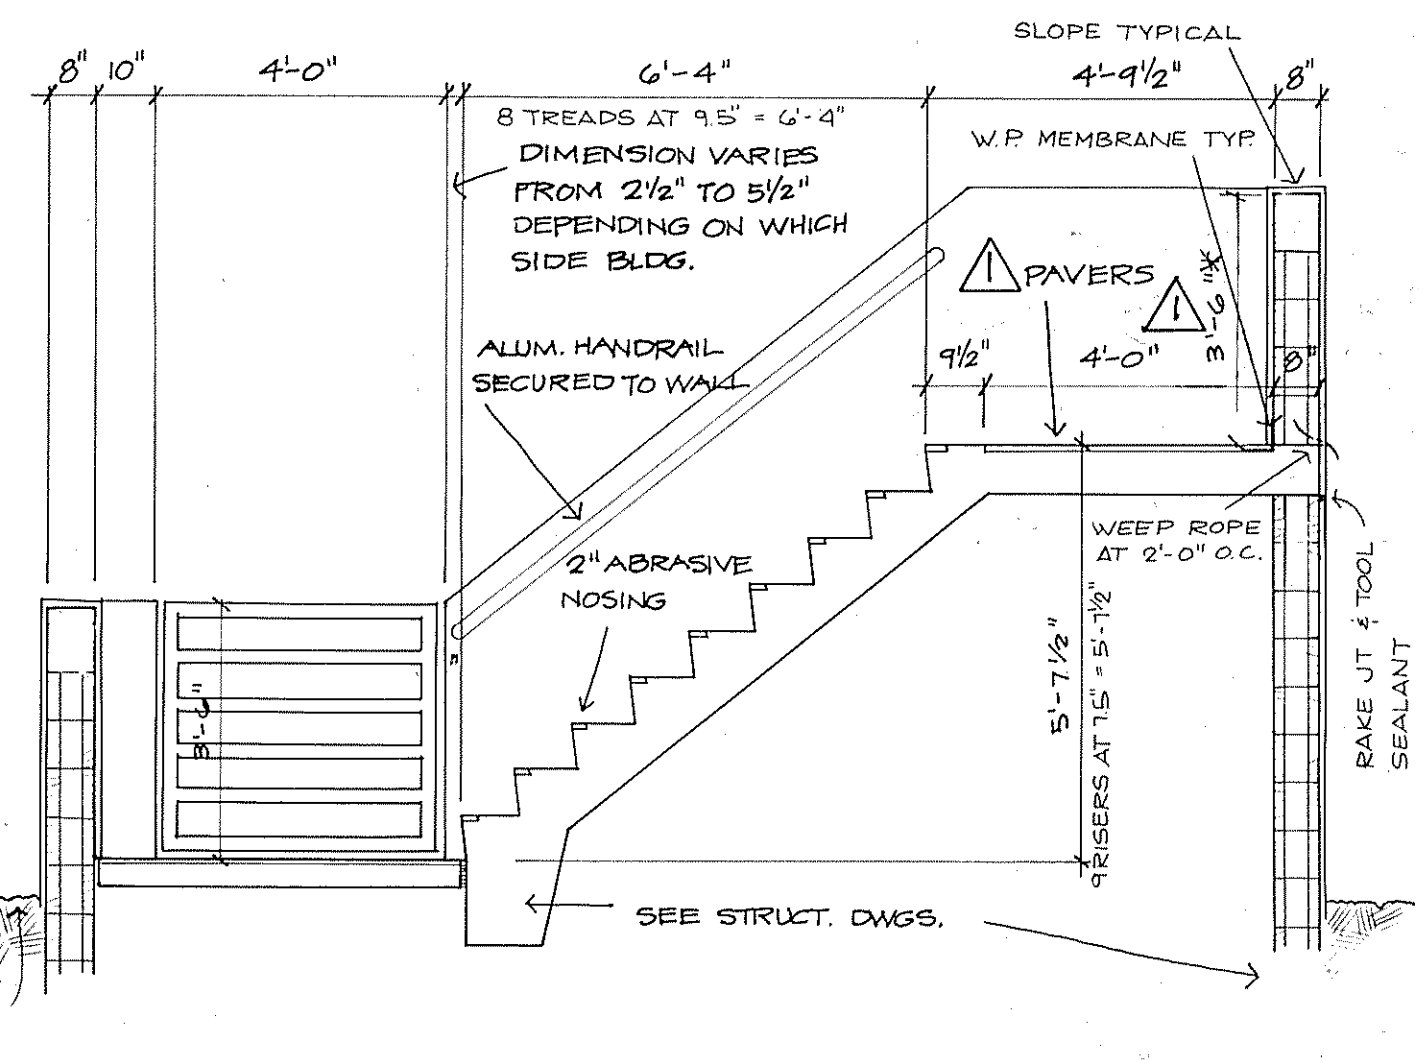 SLOPE TYPICAL
8" 10" 4'-0" 6'-4" 4'-9½" 8"
8 TREADS AT 9.5" = 6'-4"
W.P. MEMBRANE TYP.
DIMENSION VARIES
FROM 2½" TO 5½"
DEPENDING ON WHICH
SIDE BLDG.
1 PAVERS
1
3'-6"*
ALUM. HANDRAIL
SECURED TO WALL
9½" 4'-0" 8"
WEEP ROPE
AT 2'-0" O.C.
2" ABRASIVE
NOSING
3'-6"
5'-7½"
9 RISERS AT 7.5" = 5'-7½"
RAKE JT & TOOL
SEALANT
SEE STRUCT. DWGS.